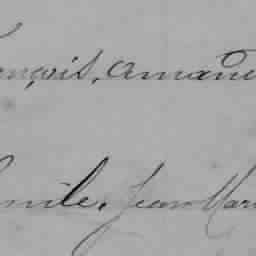 ençois, Amand
mile, Jean Mar